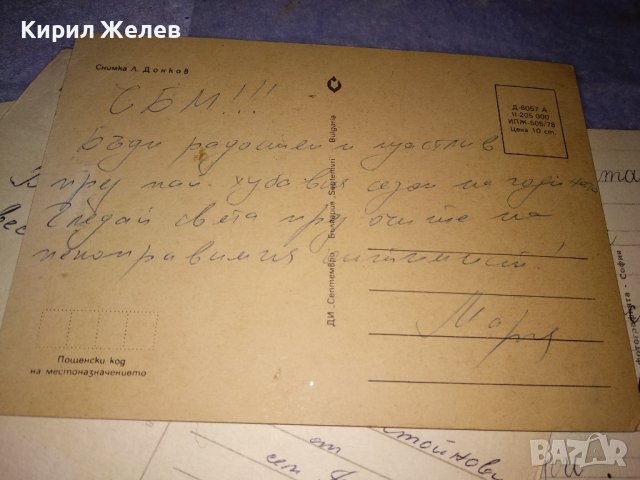 Кирил Желев
Снимка Л. Донков
Д-8057 А
II-205 000
ИПЖ-505/78
Цена 10 ст.
СБМ!!!
Бъди радостен и щастлив
през най-хубавия сезон на годината
Гледай света през очите на
непоправимия оптимист!
Мария
ДИ „Септември“ България „Septemvri“ Bulgaria
Пощенски код
на местоназначението
фотографията - София
от
BAZAR